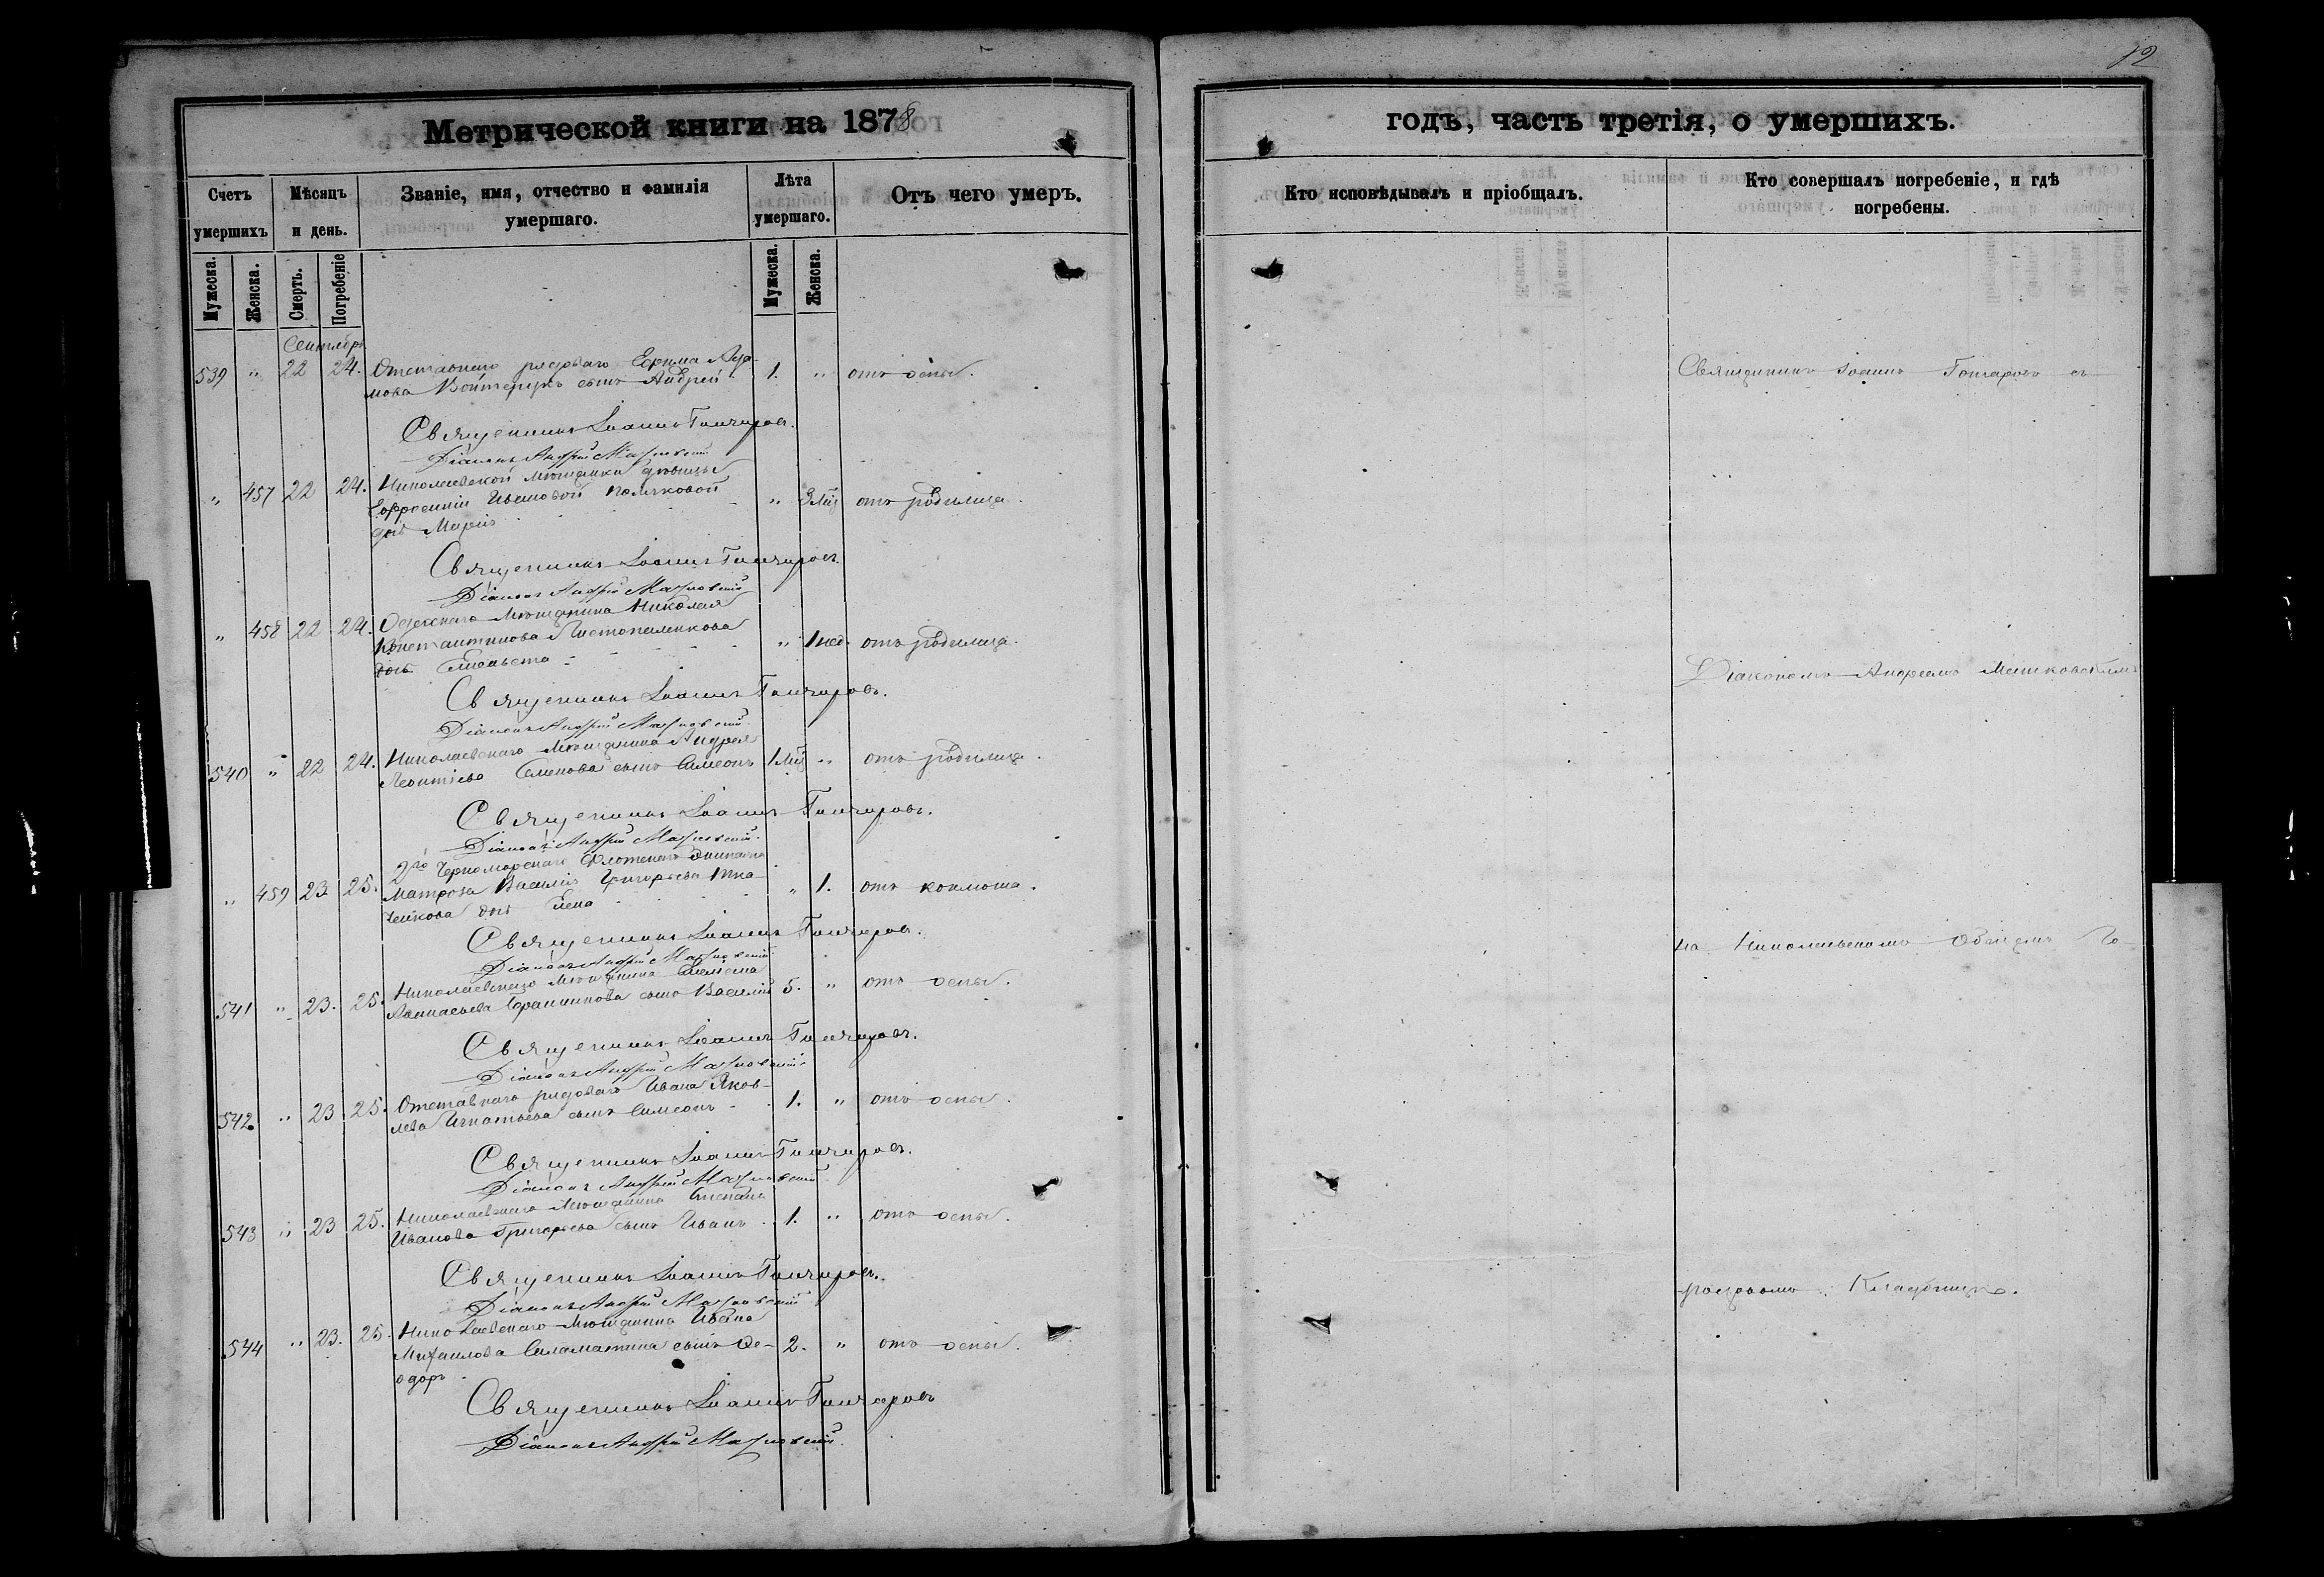 12
Метрической книги на 1878
годъ, часть третія, о умершихъ.
Счетъ умершихъ
Мѣсяцъ и день.
Званіе, имя, отчество и фамилія умершаго.
Лѣта умершаго.
Отъ чего умеръ.
Кто исповѣдывалъ и пріобщалъ.
Кто совершалъ погребеніе, и гдѣ погребены.
Мужеска.
Женска.
Смерть.
Погребеніе
Мужеска.
Женска.
Сентябрь
539 " 22 24. Отставного рядоваго Ефима Ада-
мова Войтещукъ сынъ Андрей 1. " отъ оспы.
Священникъ Іоаннъ Гончаровъ.
Діаконъ Андрей
" 457 22 24. Николаевской мѣщанки дѣвицы
Евфросиніи Ивановой Поляковой
дочь Марія " 3 мѣс отъ родимца.
Священникъ Іоаннъ Гончаровъ.
Діаконъ Андрей
" 458 22 24. Одесскаго мѣщанина Николая
Константинова
дочь Елисавета " 1 нед. отъ родимца.
Священникъ Іоаннъ Гончаровъ.
Діаконъ Андрей
540 " 22 24. Николаевскаго мѣщанина Андрея
Леонтіева Семенова сынъ Симеонъ 1 мѣс " отъ родимца.
Священникъ Іоаннъ Гончаровъ.
Діаконъ Андрей
" 459 23 25. 2го Черноморскаго Флотскаго Экипажа
матроса Василія Григорьева Тка-
ченкова дочь Елена " 1. отъ коклюша.
Священникъ Іоаннъ Гончаровъ.
Діаконъ Андрей
541 " 23. 25. Николаевскаго мѣщанина
сынъ Василій 5. " отъ оспы.
Священникъ Іоаннъ Гончаровъ.
Діаконъ Андрей
542. " 23 25. Отставного рядоваго Ивана Яков-
лева Игнатьева сынъ Симеонъ 1. " отъ оспы.
Священникъ Іоаннъ Гончаровъ.
Діаконъ Андрей
543 " 23 25. Николаевскаго мѣщанина Степана
Иванова Григорьева сынъ Иванъ 1. " отъ оспы.
Священникъ Іоаннъ Гончаровъ.
Діаконъ Андрей
544 " 23. 25. Николаевскаго мѣщанина Ивана
Михаилова Саламатина сынъ Ѳе- 2. " отъ оспы.
одоръ
Священникъ Іоаннъ Гончаровъ
Діаконъ Андрей
Священникъ Іоаннъ Гончаровъ съ
Діакономъ Андреемъ
на Николаевскомъ Общемъ Го-
родскомъ Кладбищѣ.